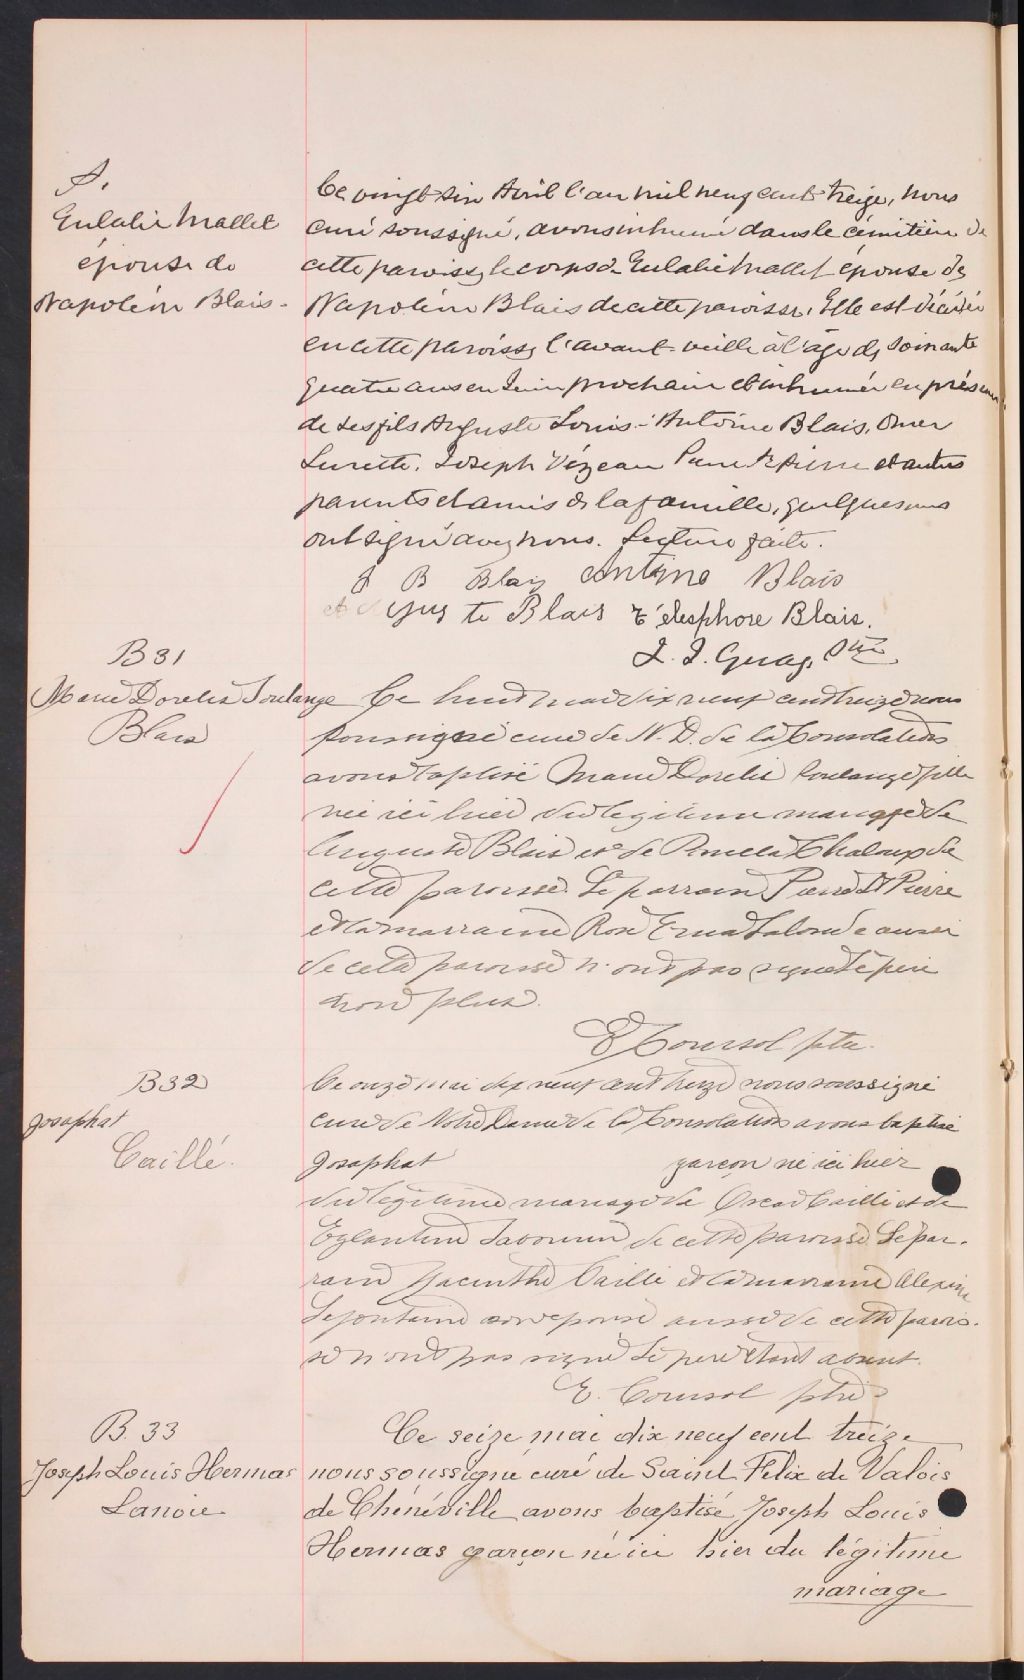 S.
Eulalie Mallet
épouse de
Napoléon Blais -
Ce vingt-six Avril l'an mil neuf cent-treize, nous
curé soussigné, avons inhumé dans le cimitière de
cette paroisse le corps d'Eulalie Mallet épouse de
Napoléon Blais de cette paroisse. Elle est décédée
en cette paroisse l'avant-veille à l'âge de soixante
quatre ans en Juin prochain et inhumée en présence
de ses fils Auguste Louis-Antoine Blais, Omer
Joseph Vézeau Pierre St Pierre et autres
parents et amis de la famille, quelques uns
ont signé avec nous. Lecture faite.
J B Blais Antoine Blais
Auguste Blais Télesphore Blais.
J. J. Guay, Ptre
B 31
Marie Dorelia Soulange
Blais
Ce huit mai dix neuf cent treize nous
soussigné curé de N. D. de la Consolation
avons baptisé Marie Dorelia Soulange fille
née ici hier du légitime mariage de
Auguste Blais et de Chaloup de
cette paroisse. Le parrain Pierre St Pierre
et la marraine Rose Erma Lalonde aussi
de cette paroisse n'ont pas signé le père
non plus.
E Coursol ptre.
B32
Josaphat
Caillé.
Ce onze mai dix neuf cent treize nous soussigné
curé de Notre Dame de la Consolation avons baptisé
Josaphat garçon né ici hier
du légitime mariage de Oscar Caillé et de
Eglantine Savourin de cette paroisse Le par-
rain Hyacinthe Caillé et la marraine Alexina
Lafontaine son épouse aussi de cette parois-
se n'ont pas signé le père étant absent.
E. Coursol ptre
B. 33
Joseph Louis Hermas
Lanoie
Ce seize mai dix neuf cent treize
nous soussigné curé de Saint Félix de Valois
de Chénéville avons baptisé Joseph Louis
Hermas garçon né ici hier du légitime
mariage